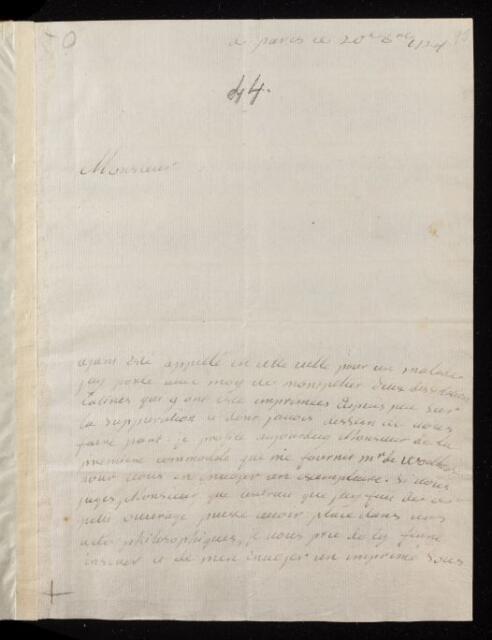 50
a paris ce 20e
44.
Monsieur
ayant esté appellé en cette ville pour un malade
j'ay porté avec moy de montpelier deux dissertations
latines qui y ont esté imprimées depuis peu sur
la suppuration et dont j'avois dessein de vous
faire part. je profite aujourdhuy Monsieur de la
premiere commodité que me fournit mr de
pour vous en envoyer un exemplaire. si vous
jugés, Monsieur que l'extrait que j'ay fait de ce
petit ouvrage puisse avoir place dans vos
actes philosophiques, je vous prie de l'y faire
inserer et de m'en envoyer un imprimé sous